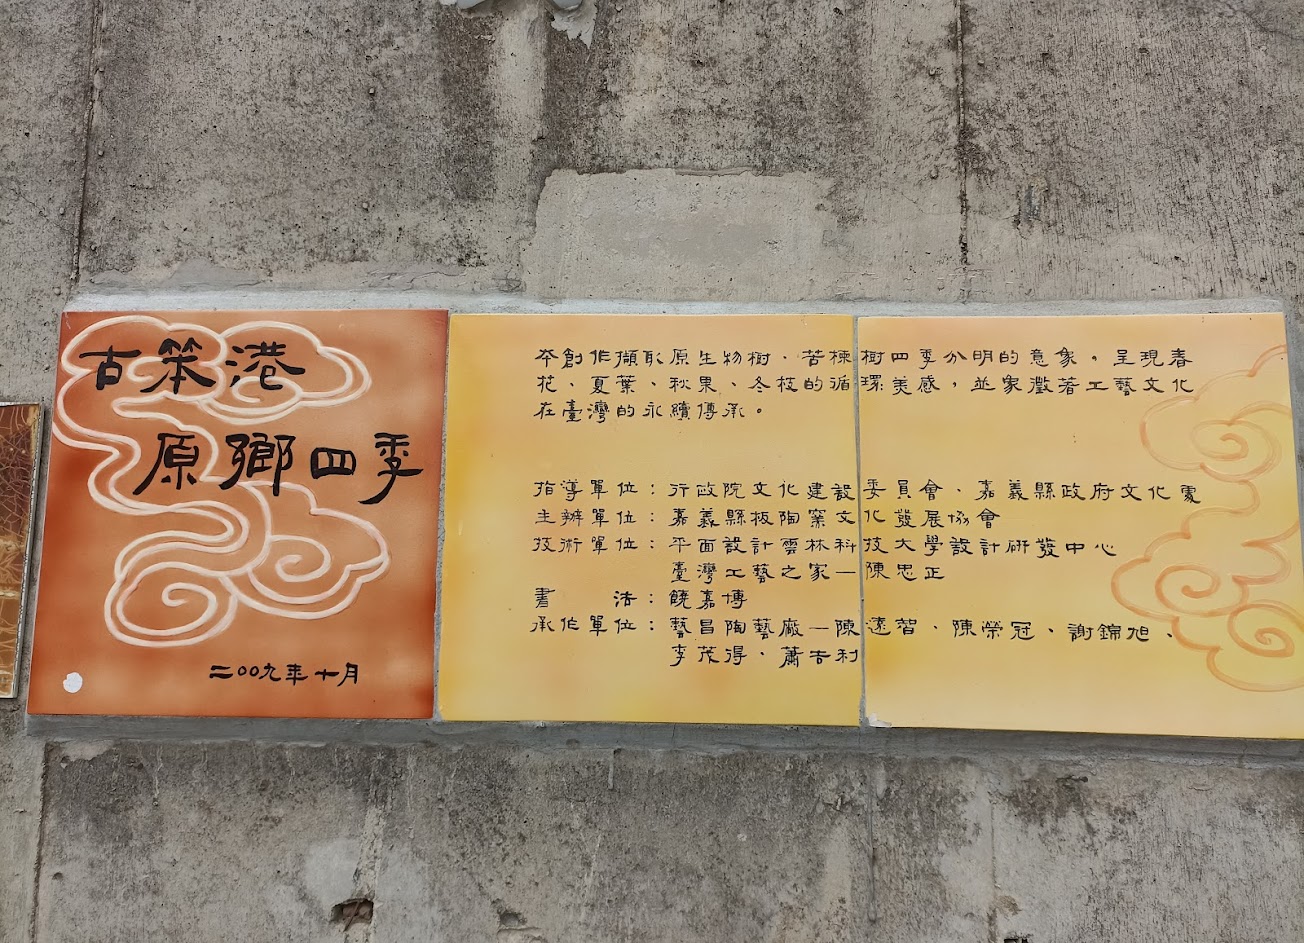 古笨港
原鄉四季
二00九年十月
本創作擷取原生物樹、苦楝樹四季分明的意象，呈現春
花、夏葉、秋果、冬枝的循環美感，並象徵著工藝文化
在臺灣的永續傳承。
指導單位：行政院文化建設委員會、嘉義縣政府文化處
主辦單位：嘉義縣板陶窯文化發展協會
技術單位：平面設計雲林科技大學設計研發中心
臺灣工藝之家—陳忠正
書 法：饒嘉博
承作單位：藝昌陶藝廠—陳逹智、陳榮冠、謝錦旭、
李茂得、蕭吉利